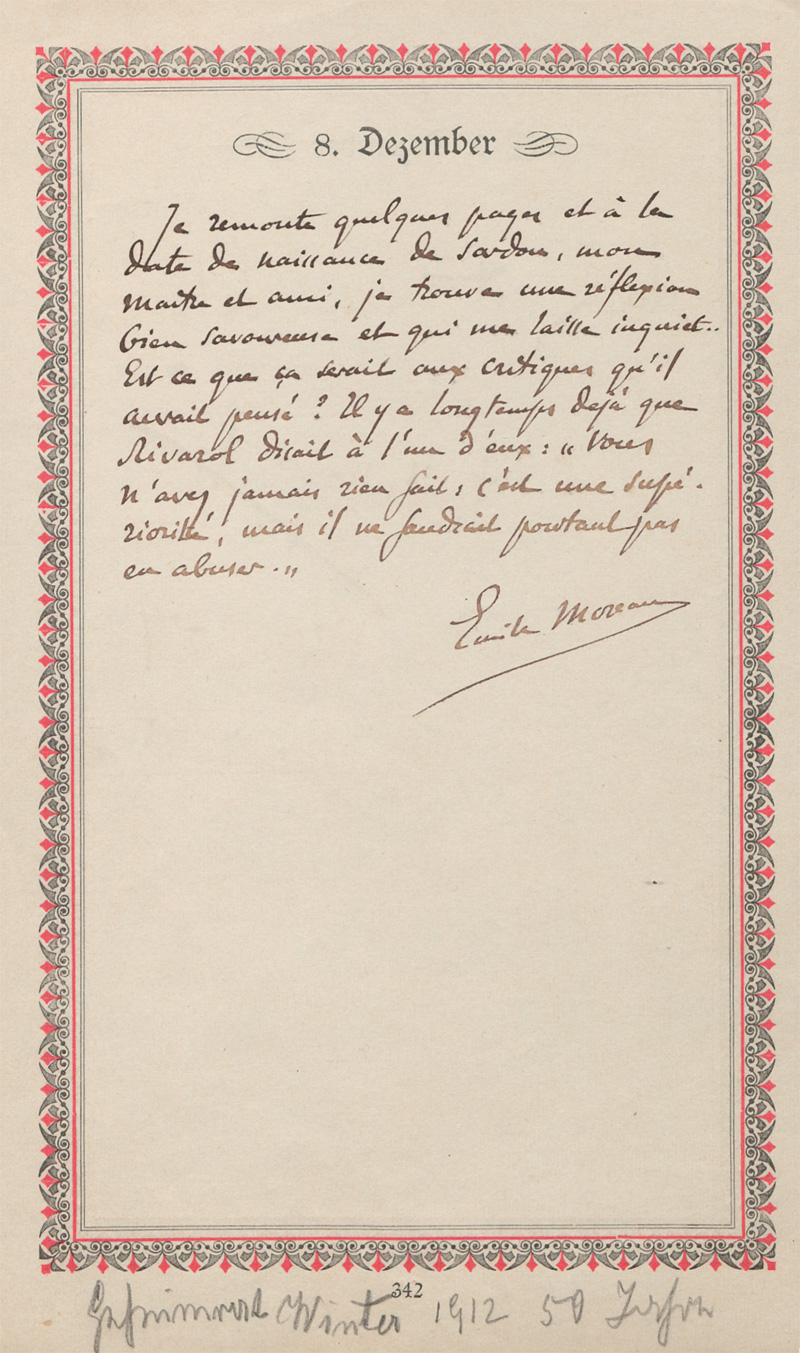 8. Dezember
Je remonte quelques pages et à la
date de naissance de Sardou, mon
maître et ami, je trouve une réflexion
bien savoureuse et qui me laisse inquiet..
Est ce que ça serait aux critiques qu'il
aurait pensé ? Il y a longtemps déjà que
Rivarol disait à l'un d'eux : « Vous
n'avez jamais rien fait ; c'est une supé-
riorité, mais il ne faudrait pourtant pas
en abuser. »
Emile Moreau
342
Geheimrat Winter 1912 50 Jahre